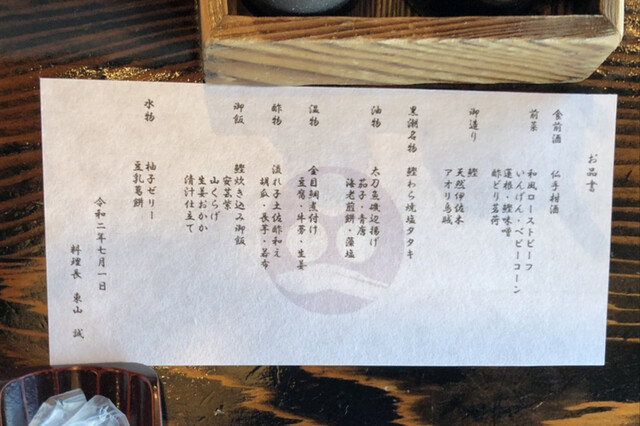 お品書
食前酒　仏手柑酒
前菜　和風ローストビーフ
いんげん・ベビーコーン
蓮根・鰹味噌
酢どり茗荷
御造り　鰹
天然伊佐木
アオリ烏賊
黒潮名物　鰹わら焼塩タタキ
油物　太刀魚磯辺揚げ
茄子・青唐
海老煎餅・藻塩
温物　金目鯛煮付け
豆腐・牛蒡・生姜
酢物　流れ子土佐酢和え
胡瓜・長芋・昆布
御飯　鰹炊き込み御飯
安芸紫
山くらげ
生姜おかか
清汁仕立て
水物　柚子ゼリー
豆乳葛餅
令和二年七月一日
料理長　東山　誠